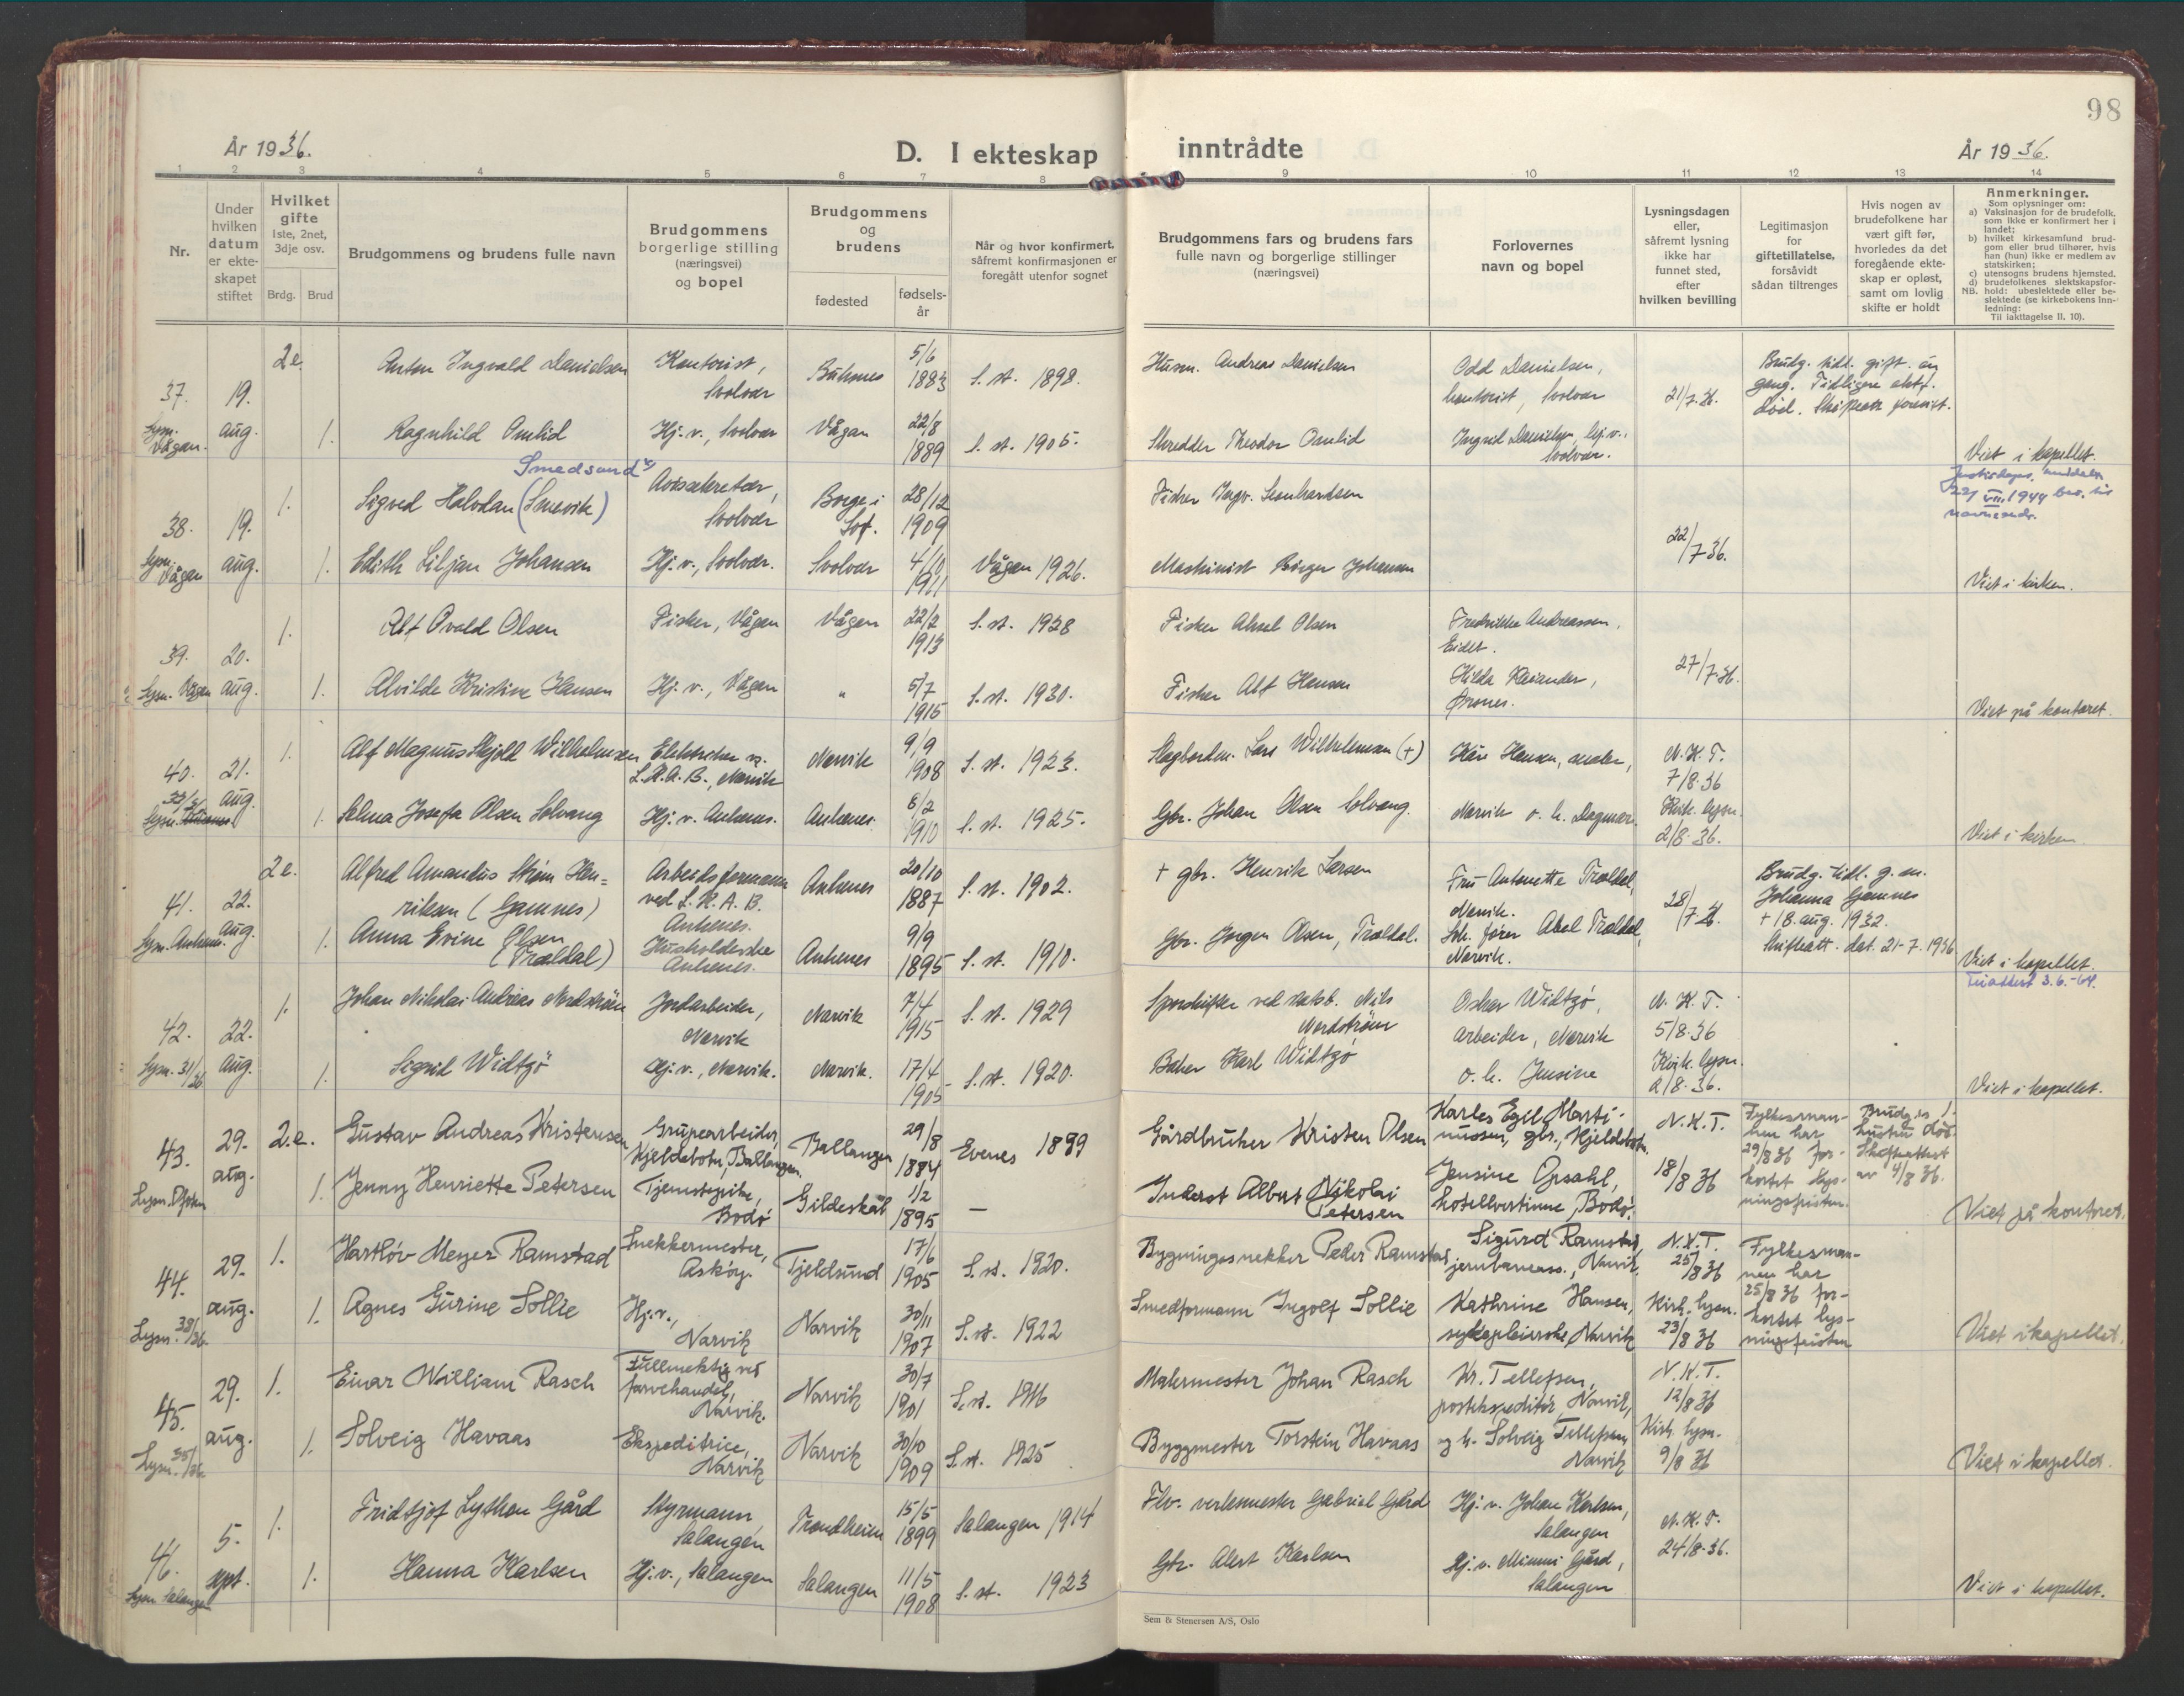 98
År 1936.
D. I ekteskap inntrådte
År 1936.
1 2 3 4 5 6 7 8 9 10 11 12 13 14
Nr.
Under hvilken datum er ekteskapet stiftet
Hvilket gifte
1ste, 2net, 3dje osv.
Brdg. Brud
Brudgommens og brudens fulle navn
Brudgommens borgerlige stilling (næringsvei) og bopel
Brudgommens og brudens
fødested
fødselsår
Når og hvor konfirmert, såfremt konfirmasjonen er foregått utenfor sognet
Brudgommens fars og brudens fars fulle navn og borgerlige stillinger (næringsvei)
Forlovernes navn og bopel
Lysningsdagen eller, såfremt lysning ikke har funnet sted, efter hvilken bevilling
Legitimasjon for giftetillatelse, forsåvidt sådan tiltrenges
Hvis nogen av brudefolkene har vært gift før, hvorledes da det foregående ekteskap er opløst, samt om lovlig skifte er holdt
Anmerkninger.
Som oplysninger om:
a) Vaksinasjon for de brudefolk, som ikke er konfirmert her i landet;
b) hvilket kirkesamfund brudgom eller brud tilhører, hvis han (hun) ikke er medlem av statskirken;
c) utensogns brudens hjemsted.
d) brudefolkenes slektskapsforhold: ubeslektede eller beslektede (se kirkebokens Innledning:
NB.
Til iakttagelse II. 10).
37. Lysn. Vågan. 19. aug.
2e. Anton Ingvald Danielsen Kontorist, Svolvær 5/6 1883 S. st. 1898. Husm. Andreas Danielsen Odd Danielsen, kontorist, Svolvær 21/7.36. Brudg. tidl. gift en gang. Tidligere ektf. død.
1. Ragnhild Omlid Hj. v., Svolvær Vågan 22/8 1889 S. st. 1905. Skredder Theodor Omlid Ingrid Danielsen, hj. v., Svolvær. Viet i kapellet.
38. Lysn. Vågan 19. aug.
Smedsund
1. Sigved Halvdan (Smevik) Avissekretær, Svolvær Borge i Lof. 28/12 1909 Fisker Ingv. Leonhardsen 22/7.36.
1. Edith Liljan Johansen Hj. v., Svolvær. Svolvær 4/10 1911 Vågan 1926. Maskinist Birger Johansen Viet i kirken.
39. Lysn. Vågan 20. aug.
1. Alf Ovald Olsen Fisker, Vågan Vågan 22/2 1913 S. st. 1928 Fisker Aksel Olsen Fredrikke Andreassen, Eidet. 27/7.36.
1. Alvilde Kristine Hansen Hj. v., Vågan " 5/7 1915 S. st. 1930. Fisker Alf Hansen Hilda Ørsnes. Viet på kontoret.
40. 21. aug.
1. Alf Magnus Skjold Wilhelmsen Elektriker v. L.K.A.B., Narvik Narvik 9/9 1908 S. st. 1923. Lars Wilhelmsen (+) Kåre Hansen, maler, N.K.T. 7/8.36
1. Selma Josefa Olsen Solvang Hj. v. Ankenes. Ankenes. 8/2 1910 S. st. 1925. Gbr. Johan Olsen Solvang. Narvik o. h. Dagmar. Kirk. lysn. 2/8.36. Viet i kirken.
41. Lysn. Ankenes. 22. aug.
2e. Alfred Amandus Strøm Henriksen (Gamnes) Arbeidsformann ved L.K.A.B. Ankenes. Ankenes 20/10 1887 S. st. 1902. + gbr. Henrik Larsen Fru Antonette Trældal, Narvik. 28/7.36. Brudg. tidl. g. m. Johanna Gamnes + 18. aug. 1932. Skifteatt. dat. 21-7. 1936
1. Anna Evine Olsen (Trældal) Husholderske Ankenes. Ankenes 9/9 1895 S. st. 1910. Gbr. Jørgen Olsen, Trældal. Lok. fører Abel Trældal, Narvik. Viet i kapellet.
3.6.-64.
42. Lysn. 31/36 22. aug.
1. Johan Nikolai Andreas Nordstrøm Jordarbeider, Narvik Narvik 7/4 1915 S. st. 1929 Sporskifter ved statsb. Nils Nordström Oskar Widtzø, arbeider, Narvik N.K.T. 5/8.36
1. Sigrid Widtzö Hj. v., Narvik. Narvik. 17/4 1905 S. st. 1920. Baker Karl Widtzö o. h. Jensine Kirk. lysn. 2/8.36. Viet i kapellet.
43. Lysn. Ofoten 29. aug.
2.e. Gustav Andreas Kristensen Grupearbeider, Kjeldebotn, Ballangen Ballangen 29/8 1884 Evenes 1899 Gårdbruker Kristen Olsen Karles Egil Martinussen, gbr., Kjeldebotn N.K.T. Fylkesmannen har 29/8 36 forkortet lysningsfristen. Brudg.s 1. hustru død. Skifteattest av 4/8 36.
1. Jenny Henriette Petersen Tjenestepike, Bodø Gildeskål 1/2 1895 — Inderst Albert Nikolai Petersen Jensine Opsahl, hotellvertinne, Bodø. 18/8 36 Viet på kontoret.
44. Lysn. 38/36. 29. aug.
1. Hartløv Meyer Ramstad Snekkermester, Askøy. Tjeldsund 17/6 1905 S. st. 1920. Bygningssnekker Peder Ramstad Sigurd Ramstad jernbaneass., Narvik. N.K.T. 25/8 36 Fylkesmannen har 25/8 36 forkortet lysningsfristen
1. Agnes Gurine Sollie Hj. v., Narvik Narvik 30/11 1907 S. st. 1922 Smedformann Ingolf Sollie Kathrine Hansen, sykepleierske, Narvik Kirk. lysn. 23/8 36 Viet i kapellet.
45. Lysn. 35/36 29. aug.
1. Einar William Rasch Fullmektig ved farvehandel, Narvik. Narvik 30/7 1901 S. st. 1916 Malermester Johan Rasch Kr. Tellefsen, postekspeditør, Narvik, N.K.T. 12/8 36
1. Solveig Havaas Ekspeditrice, Narvik Narvik 30/10 1909 S. st. 1925 Byggmester Torstein Havaas og h. Solveig Tellefsen Narvik Kirk. lysn. 9/8 36 Viet i kapellet.
46. Lysn. Salangen 5. sept.
1. Fridtjof Lython Gård Styrmann, Salangen Trondheim 15/5 1899 Salangen 1914 Flv. verksmester Gabriel Gård Hj. v. Johan Karlsen, Salangen N.K.T. 24/8.36.
1. Hanna Karlsen Hj. v., Salangen Salangen 11/5 1908 S. st. 1923 Gbr. Karlsen Hj. v. Mimmi Gård, Salangen Viet i kapellet.
Sem & Stenersen A/S, Oslo